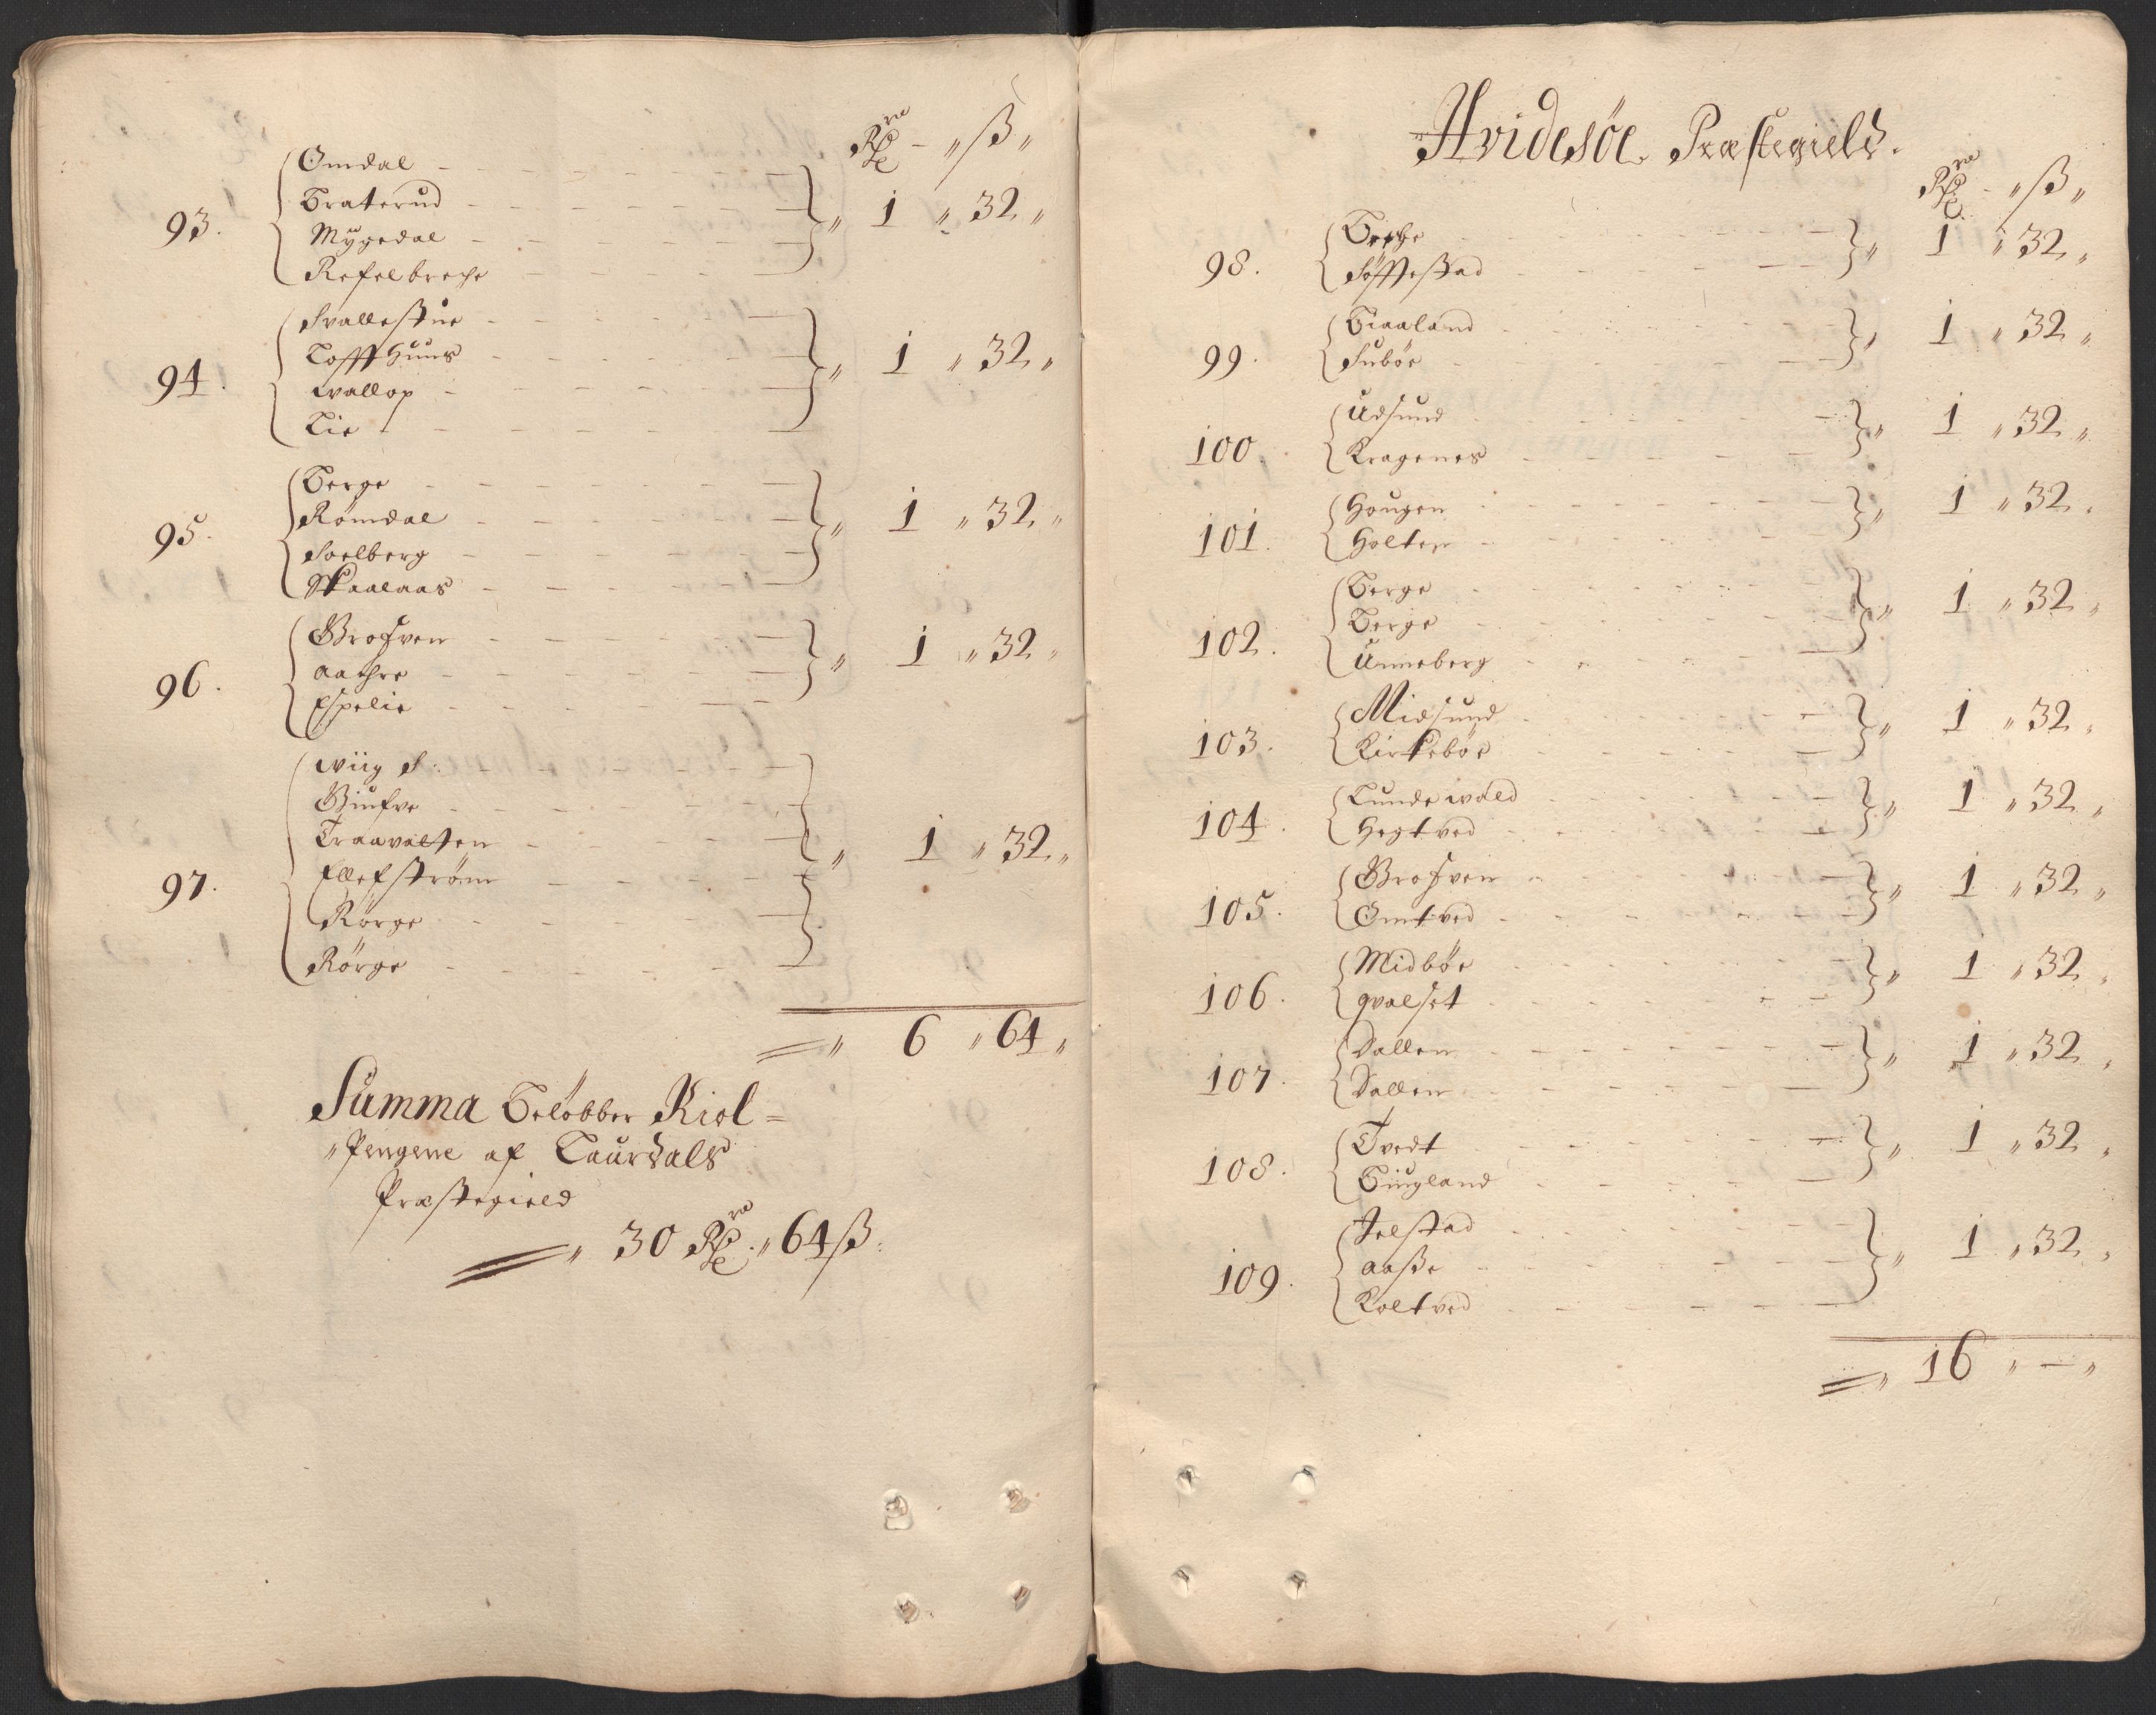 Rdr - " ß "
93. Omdal
Braterud
Mygedal
Refelbreche
" 1 " 32 "
94. Svallestue
Loffthuus
wallop
Lie
" 1 " 32 "
95. Berge
Romdal
Soelberg
Skaalaas
" 1 " 32 "
96. Grofven
aathre
Espelie
" 1 " 32 "
97. wiig S:
Giufve
Traavatten
Ellefstrøm
Rørge
Rørge
" 1 " 32 "
" 6 " 64 "
Summa Beløbber Kiol=
"Pengene af Laurdals
Præstegield
" 30 Rdr " 64 ß:
Hvidesöe Præstegield.
Rdr - " ß "
98.
Söfftestad
" 1 " 32 "
99. Biaaland
Subøe
" 1 " 32 "
100. Udsund
Kragenes
" 1 " 32 "
101. Hougen
Holten
" 1 " 32 "
102. Berge
Berge
Unneberg
" 1 " 32 "
103. Midsund
Kirkebøe
" 1 " 32 "
104. Lundevald
Hegtved
" 1 " 32 "
105. Grofven
Omtved
" 1 " 32 "
106. Midbøe
qvalset
" 1 " 32 "
107. Dallen
Dallen
" 1 " 32 "
108. Tvedt
Biugland
" 1 " 32 "
109. Selstad
aaße
Koltved
" 1 " 32 "
" 16 " — "